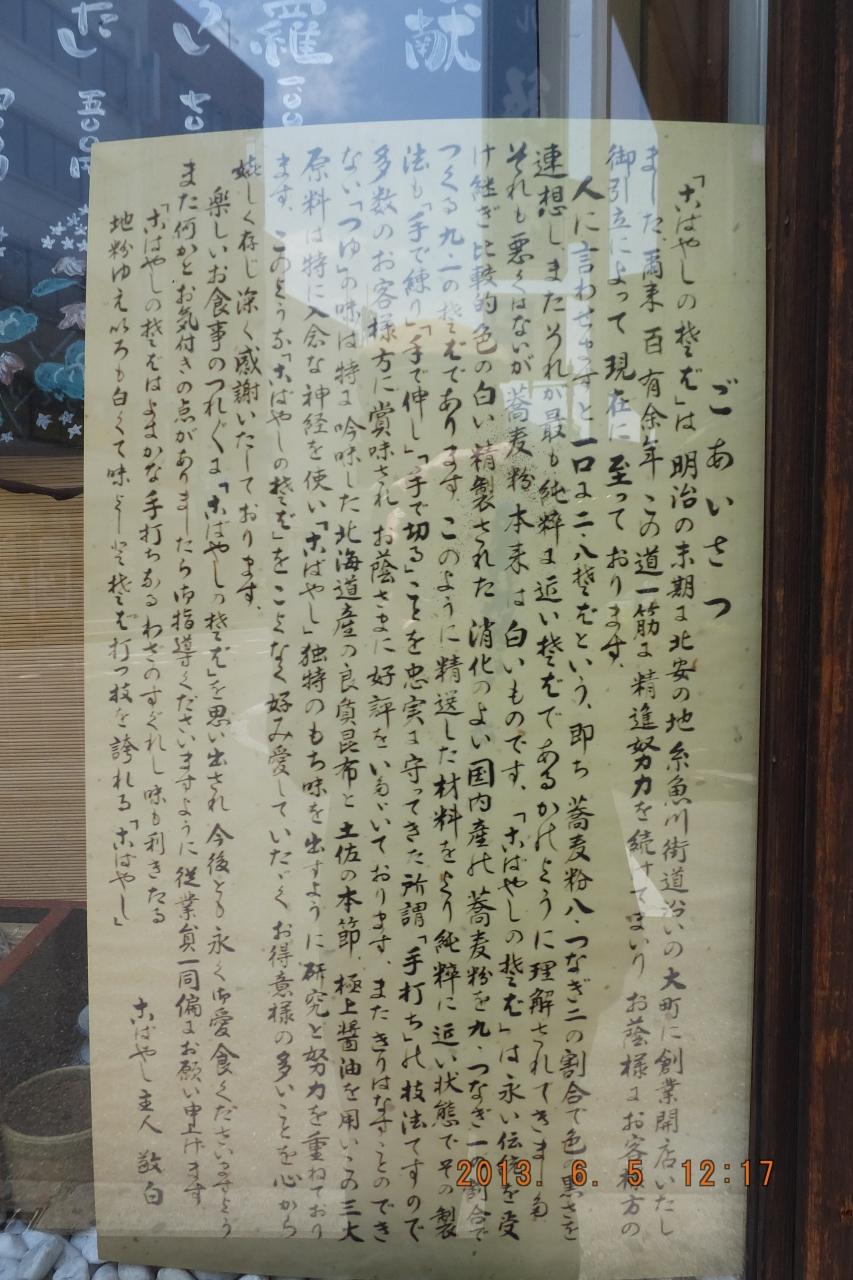 献
羅 一〇〇
七〇
たし 五〇〇円
ごあいさつ
「こばやしのそば」は明治の末期に北安の地糸魚川街道沿いの大町に創業開店いたし
ました爾来百有余年この道一筋に精進努力を続けてまいりお蔭様にお客様方の
御引立によって現在に至っております。
人に言わせますと一口に二・八そばという、即ち蕎麦粉八・つなぎ二の割合で色の黒さを
連想しまたそれが最も純粋に近いそばであるかのように理解されてきました
それも悪くはないが蕎麦粉本来は白いものです、「こばやしのそば」は永い伝統を受
け継ぎ比較的色の白い精製された消化のよい国内産の蕎麦粉を九・つなぎ一の割合で
つくる九・一のそばであります このように精送した材料をより純粋に近い状態でその製
法も「手で練り」「手で伸し」「手で切る」ことを忠実に守ってきた所謂「手打ち」の技法ですので
多数のお客様方に賞味されお蔭さまに好評をいただいております、またきりはなすことのでき
ない「つゆ」の味は特に吟味した北海道産の良質昆布と土佐の本節、極上醤油を用いこの三大
原料は特に入念な神経を使い「こばやし」独特のもち味を出すように研究と努力を重ねており
ます、このような「こばやしのそば」をことなく好み愛していただくお得意様の多いことを心から
嬉しく存じ深く感謝いたしております、
楽しいお食事のつれづれに「こばやしのそば」を思い出され今後とも永く御愛食くださいますよう
また何かとお気付きの点がありましたら御指導くださいますように従業員一同偏にお願い申上げます
「こばやしのそばはよまかな手打ちなるわざのすぐれし味も利きたる
地粉ゆえいろも白くて味よしとそば打つ技を誇れる「こばやし」
こばやし主人 敬白
2013. 6. 5 12:17